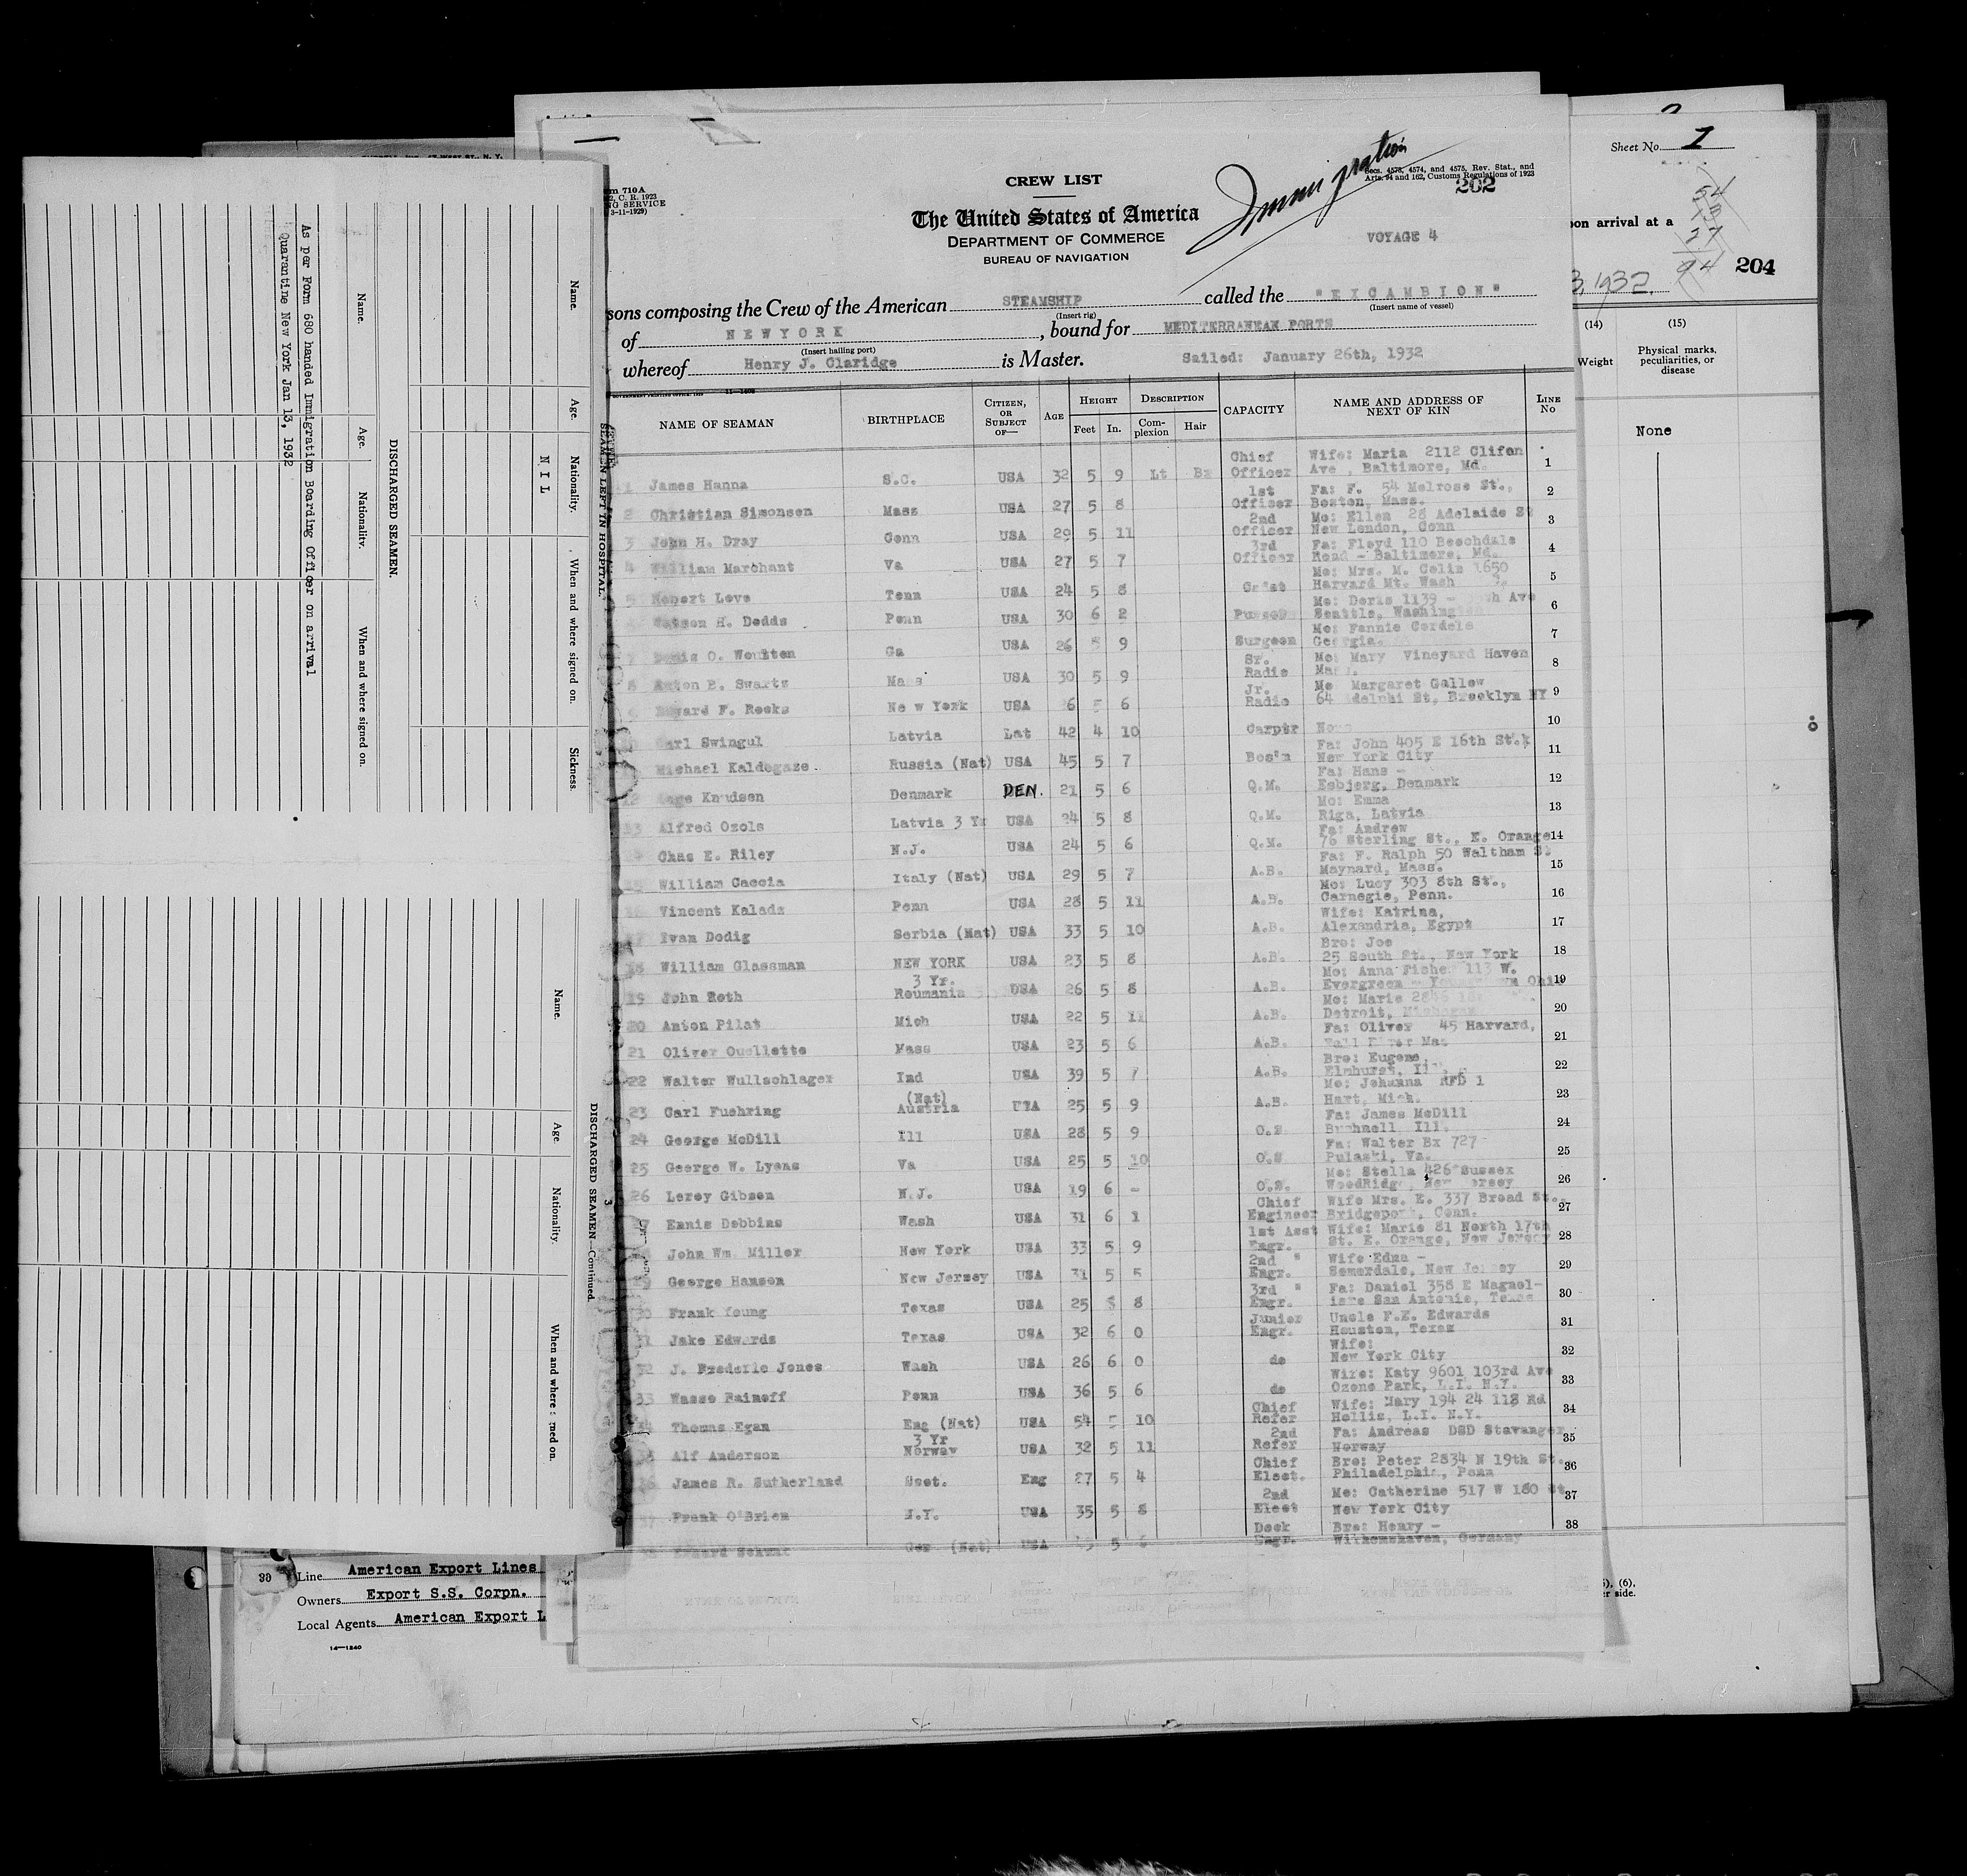 CREW LIST
Secs. 4573, 4574, and 4575, Rev. Stat., and
Arts. 94 and 162, Customs Regulations of 1923
Immigration
202
The United States of America
DEPARTMENT OF COMMERCE
BUREAU OF NAVIGATION
VOYAGE 4
m 710A
C. R. 1923
NG SERVICE
3-11-1929)
sons composing the Crew of the American STEAMSHIP called the "EXCAMBION"
(Insert rig) (Insert name of vessel)
of NEWYORK, bound for MEDITERRANEAN PORTS
(Insert hailing port)
whereof Henry J. Claridge is Master. Sailed: January 26th, 1932
NAME OF SEAMAN BIRTHPLACE CITIZEN, OR SUBJECT OF— AGE HEIGHT Feet In. DESCRIPTION Complexion Hair CAPACITY NAME AND ADDRESS OF NEXT OF KIN LINE No
1 James Hanna S.C. USA 32 5 9 Lt Chief Officer Wife: Maria 2112 Clifon Ave , Baltimore, Md. 1
2 Christian Simonsen Mass USA 27 5 8 1st Officer Fa: F. 54 Melrose St., Boston, Mass. 2
3 John H. Dray Conn USA 29 5 11 2nd Officer Mo: Ellen 28 Adelaide St New London, Conn 3
4 William Marchant Va USA 27 5 7 3rd Officer Fa: Floyd 110 Beechdale Road - Baltimore, Md. 4
5 Robert Love Tenn USA 24 5 8 Cadet Mo: Mrs. M. Colin 1650 Harvard Mt. Wash 5
Watson H. Dodds Penn USA 30 6 2 Purser Mo: Doris 1139 - Ave Seattle, Washington 6
O. Woulten Ga USA 26 5 9 Surgeon Mo: Fannie Cordele Georgia. 7
8 Anton B. Swartz Mass USA 30 5 9 Sr. Radio Mo: Mary Vineyard Haven Mass. 8
Edward F. Rooks New York USA 6 Jr. Radio Mo Margaret Gallow 64 Adelphi St, Brooklyn NY 9
Carl Swingul Latvia Lat 42 4 10 Carptr None 10
Michael Kaldegaze Russia (Nat) USA 45 5 7 Bos'n Fa: John 405 E 16th St. New York City 11
12 Aage Knudsen Denmark DEN. 21 5 6 Q.M. Fa: Hans - Esbjerg, Denmark 12
13 Alfred Ozols Latvia 3 Yr USA 24 5 8 Q.M. Mo: Emma Riga, Latvia 13
Chas E. Riley N.J. USA 24 5 6 Q.M. Fa: Andrew 76 Sterling St., E. Orange 14
15 William Caccia Italy (Nat) USA 29 5 7 A.B. Fa: F. Ralph 50 Waltham St Maynard, Mass. 15
16 Vincent Kalada Penn USA 28 5 11 A.B. Mo: Lucy 303 8th St., Carnegie, Penn. 16
17 Ivan Dodig Serbia (Nat) USA 33 5 10 A.B. Wife: Katrina, Alexandria, Egypt 17
18 William Glassman NEW YORK USA 23 5 8 A.B. Bro: Joe 25 South St., New York 18
19 John Roth 3 Yr. Roumania USA 26 5 8 A.B. Mo: Anna Fisher 113 W. Evergreen - Ohio 19
20 Anton Pilat Mich USA 22 5 11 A.B. Mo: Marie Detroit, Michagan 20
21 Oliver Ouellette Mass USA 23 5 6 A.B. Fa: Oliver 45 Harvard, Fall River Mas 21
22 Walter Wullschlager Ind USA 39 5 7 A.B. Bro: Eugene, Elmhurst, Ill. 22
23 Carl Fuehring (Nat) Austria USA 25 5 9 A.B. Mo: Johanna RFD 1 Hart, Mich. 23
24 George McDill Ill USA 28 5 9 O.S. Fa: James McDill Bushnell, Ill. 24
25 George W. Lyons Va USA 25 5 10 O.S Fa: Walter Bx 727 Pulaski, Va. 25
26 Leroy Gibson N.J. USA 19 6 - O.S. Mo: Stella 426 Sussex WoodRidge, New Jersey 26
27 Ennis Dobbins Wash USA 31 6 1 Chief Engineer Wife Mrs. E. 337 Broad St. Bridgeport, Conn. 27
John Wm. Miller New York USA 33 5 9 1st Asst Engr. Wife: Marie 81 North 17th St. E. Orange, New Jersey 28
29 George Hansen New Jersey USA 31 5 5 2nd " Engr. Wife Edna - Somerdale, New Jersey 29
30 Frank Young Texas USA 25 5 8 3rd " Engr. Fa: Daniel 358 E Magnol- San Antonio, Texas 30
31 Jake Edwards Texas USA 32 6 0 Junior Engr. Uncle F.E. Edwards Houston, Texas 31
32 J. Frederic Jones Wash USA 26 6 0 do Wife: New York City 32
33 Wasso Faimoff Penn USA 36 5 6 do Wife: Katy 9601 103rd Ave Ozone Park, L.I. N.Y. 33
34 Thomas Egan Eng (Nat) USA 54 5 10 Chief Refer Wife: Mary 194 24 118 Rd Hollis, L.I. N.Y. 34
Alf Anderson 3 Yr Norway USA 32 5 11 2nd Refer Fa: Andreas DSD Stavanger Norway 35
36 James R. Sutherland Scot. Eng 27 5 4 Chief Elect. Bro: Peter 2834 N 19th St. Philadelphia, Penn 36
37 Frank O'Brien N.Y. USA 35 5 8 2nd Elect Mo: Catherine 517 W 180 St New York City 37
Ger (Nat) USA 5 Deck Engr. Bro: Henry - Wilhemshaven, Germany 38
Sheet No. 1
54
27
94
204
pon arrival at a
3, 1932.
(14) (15)
Weight
Physical marks, peculiarities, or disease
None
er side.
SEAMEN LEFT IN HOSPITAL.
Name. Age. Nationality. When and where signed on. Sickness.
N I L
DISCHARGED SEAMEN.
Name. Age. Nationality. When and where signed on.
As per Form 680 handed Immigration Boarding Officer on arrival
Quarantine New York Jan 13, 1932
DISCHARGED SEAMEN—Continued.
3
Name. Age. Nationality. When and where signed on.
30
Line American Export Lines
Owners Export S.S. Corpn.
Local Agents American Export L
14—1240